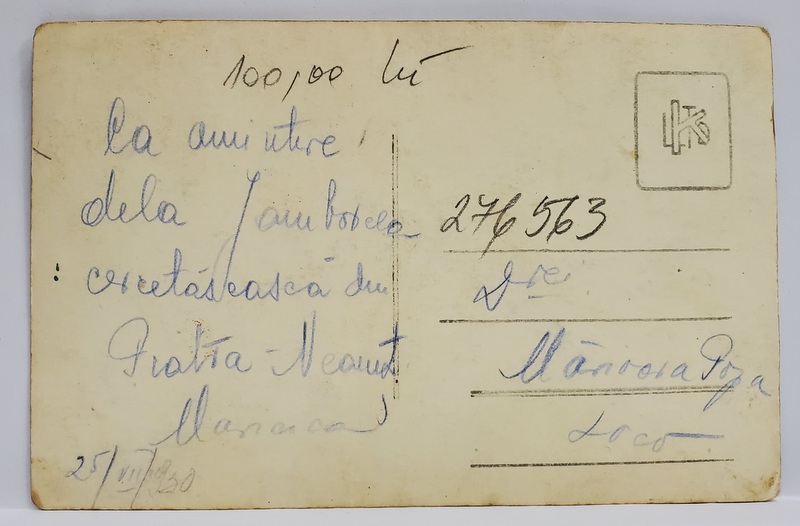 100,00 lei
Ca amintire
dela Jamboreea
cercetășească din
Piatra-Neamț
25/VII/930
276563
D-rei
Mărioara Popa
Loco